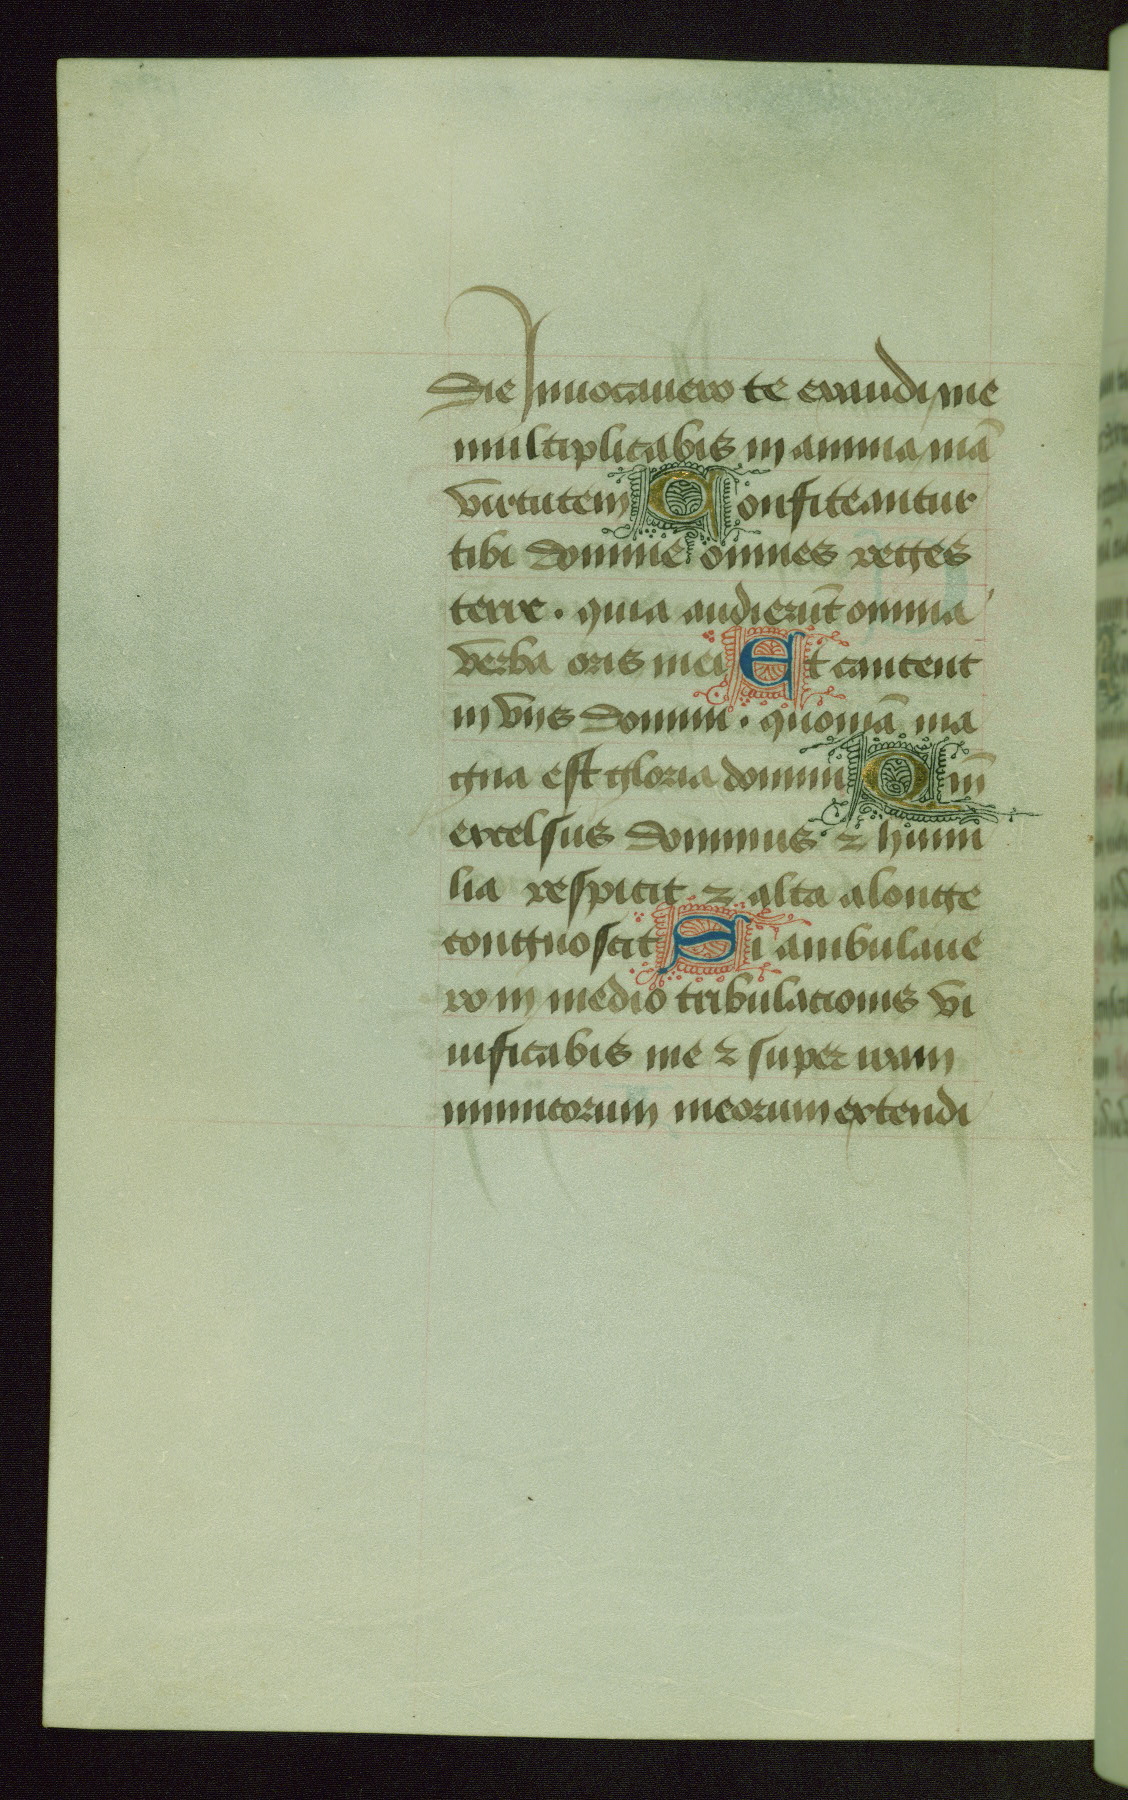 die Inuocauero te exaudi me
multiplicabis in anima mā
virtutem Confiteantur
tibi domine omnes reges
terre . quia audierūt omnia
verba oris mei Et cantent
in viis domini . quoniā ma
gna est gloria domini Qm̄
excelsus dominus ⁊ humi
lia respicit ⁊ alta a longe
congnoscit Si ambulaue
ro in medio tribulacionis vi
uificabis me ⁊ super iram
inimicorum meorum extendi